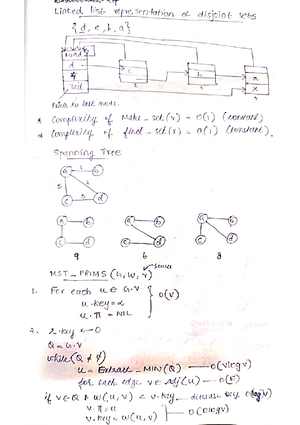 Linked list representation of disjoint sets
{d, c, b, a}
c
b
a
x
Points to last node.
* Complexity of Make-set(x) - O(1) (constant)
* Complexity of find-set(x) = O(1) (constant).
Spanning Tree
a b
c d
a b a b a b
c d c d c d
9 6 8
MST_PRIMS(G, w, r) source
1. For each u ∈ G.V
u.key = ∞
u.π = NIL
} O(V)
2. r.key ← 0
Q = G.V
while (Q ≠ ∅)
u = Extract_MIN(Q) — O(V log V)
for each edge v ∈ Adj(u) — O(E)
if v ∈ Q & w(u, v) < v.key
v.π = u
v.key = w(u, v)